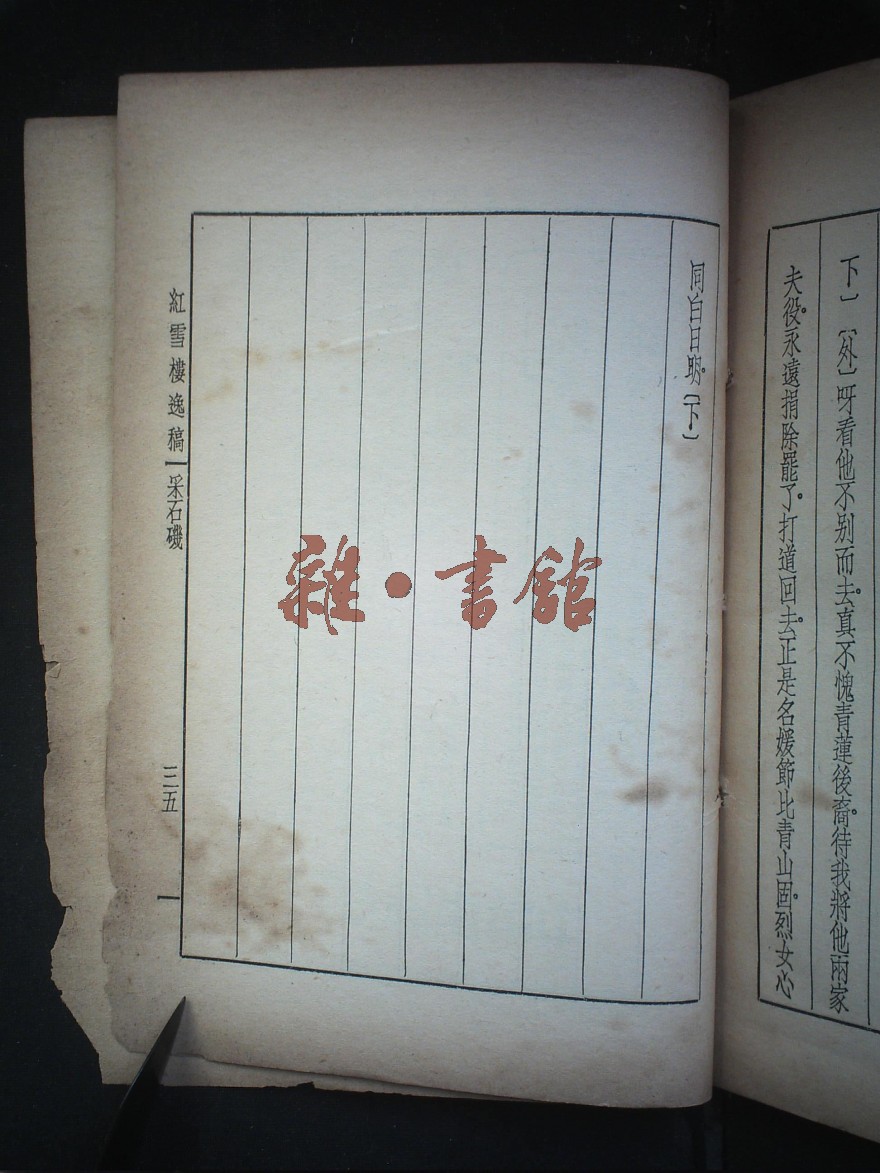 下〕〔外〕呀看他不别而去。真不愧青蓮後裔。待我將他兩家
夫役。永遠捐除罷了。打道回去。正是名媛節比青山固。烈女心
同白日明。〔下〕
紅雪樓逸稿
采石磯
三五
雜·書館